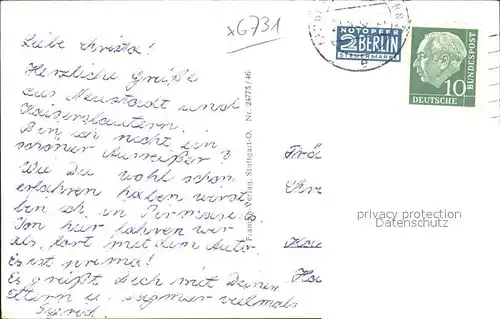 x6731
NOTOPFER
2 BERLIN
STEUERMARKE
10
DEUTSCHE
BUNDESPOST
Liebe Christa!
Herzliche Grüße
aus Neustadt und
Kaiserslautern.
Bin ich nicht ein
schöner Ausreißer?
Wie Du wohl schon
erfahren haben wirst
bin ich in Pirmasens.
Von hier fahren wir
als, fort mit dem Auto.
Es ist prima!
Es grüßt Dich mit Deinen
Eltern u. Dagmar vielmals
Franckh-Verlag, Stuttgart-O. Nr. 24775/46
Frä
privacy protection
Datenschutz
Ha